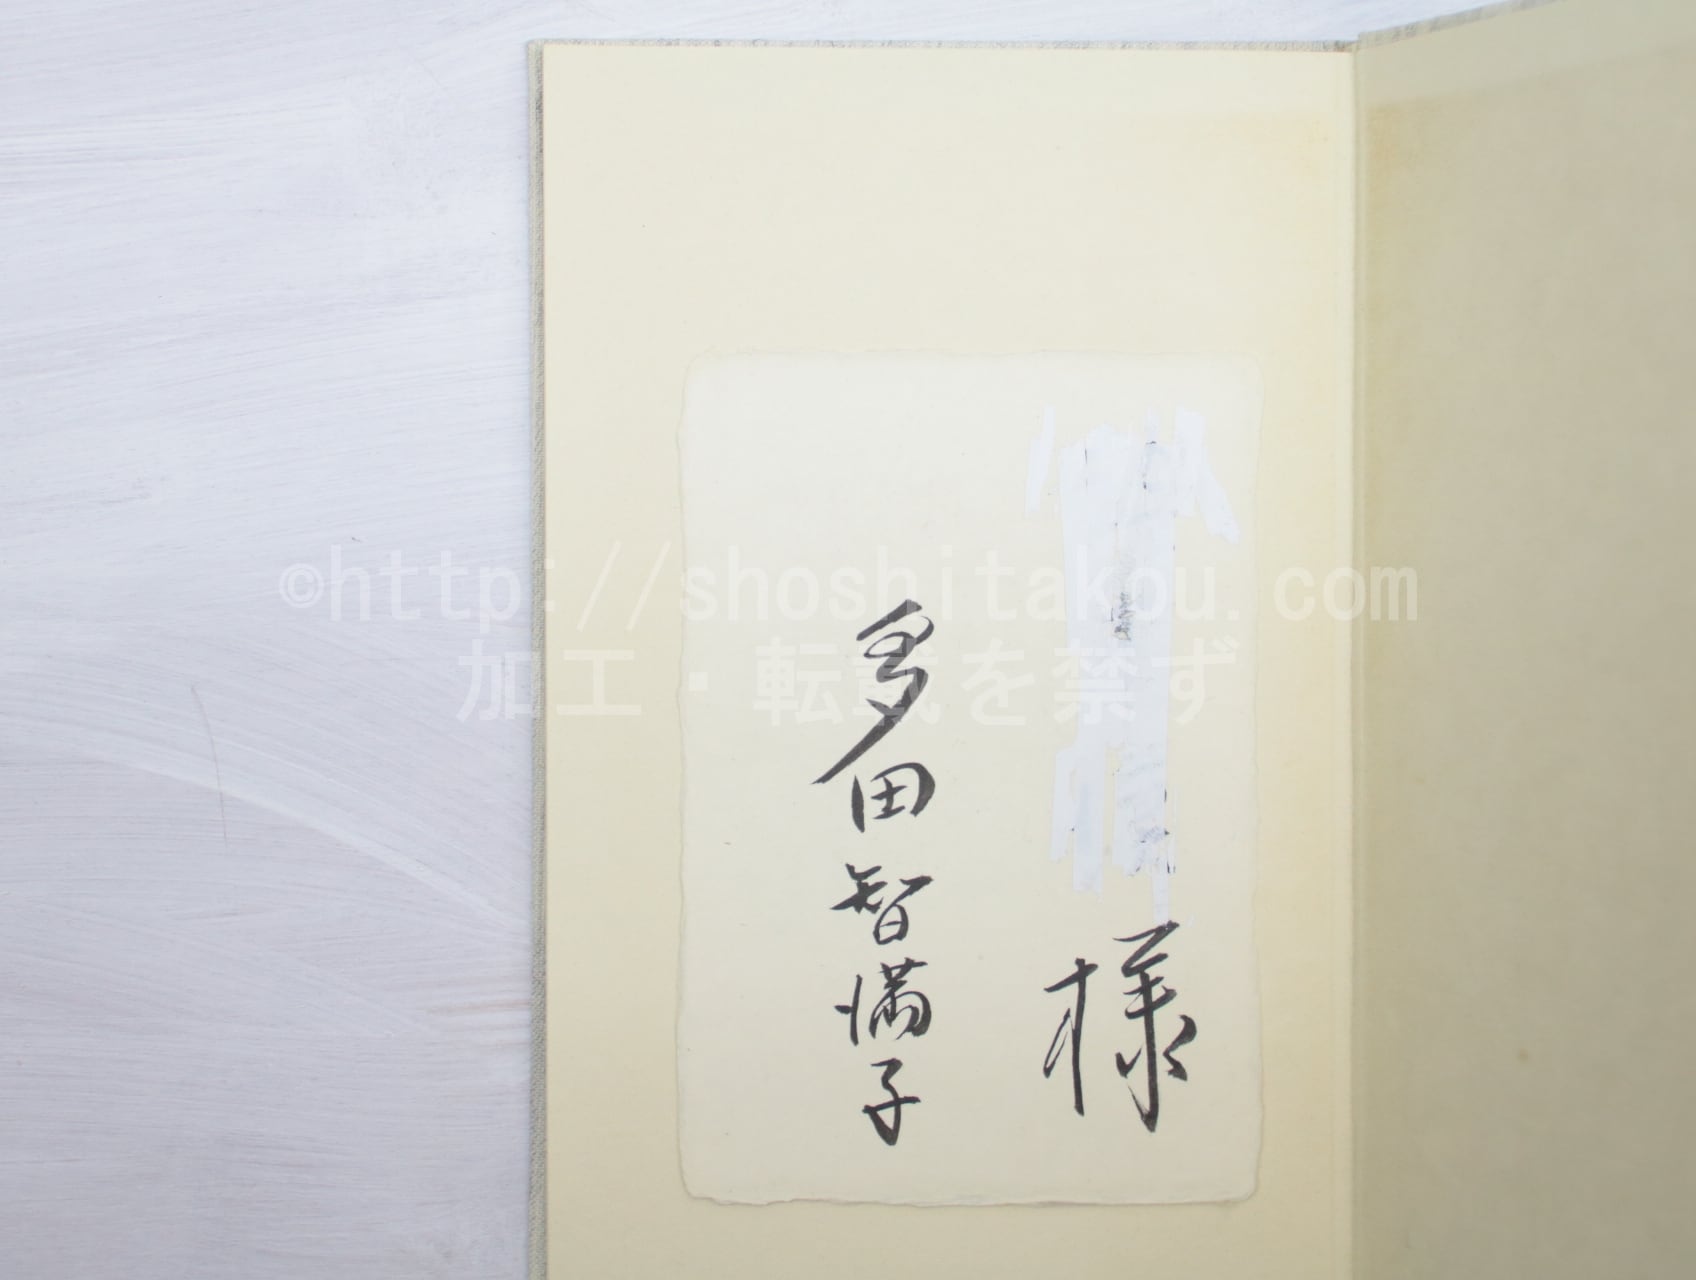 様
多田智満子
©http://shoshitakou.com
加工・転載を禁ず